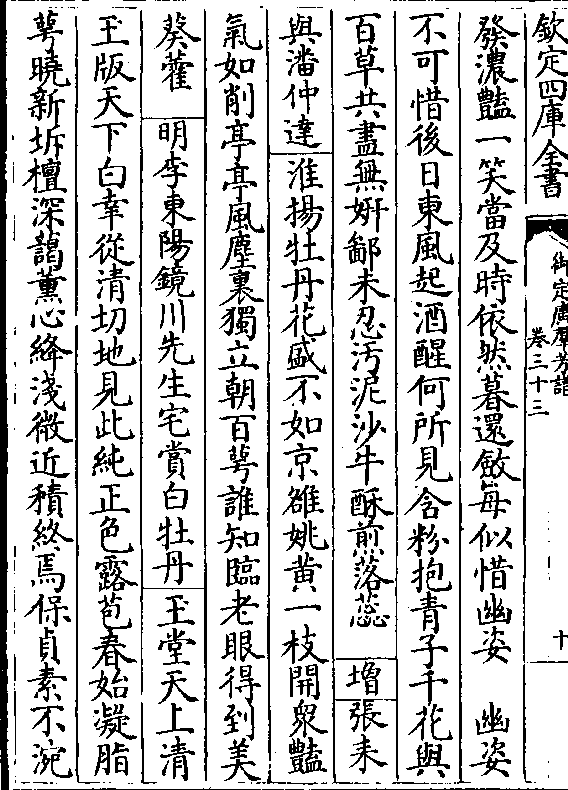 欽定四庫全書
御定廣羣芳譜
卷三十三
十
發濃豔一笑當及時依然暮還斂每似惜幽姿　幽姿
不可惜後日東風起酒醒何所見含粉抱青子千花與
百草共盡無姸鄙未忍汚泥沙牛酥煎落蘂　增張耒
與潘仲達　淮揚牡丹花盛不如京雒姚黃一枝開衆豔
氣如削亭亭風塵裏獨立朝百萼誰知臨老眼得到美
葵藿　明李東陽鏡川先生宅賞白牡丹　玉堂天上清
玉版天下白幸從清切地見此純正色露苞春始凝脂
萼曉新坼檀深藹薰心絳淺微近積終焉保貞素不涴